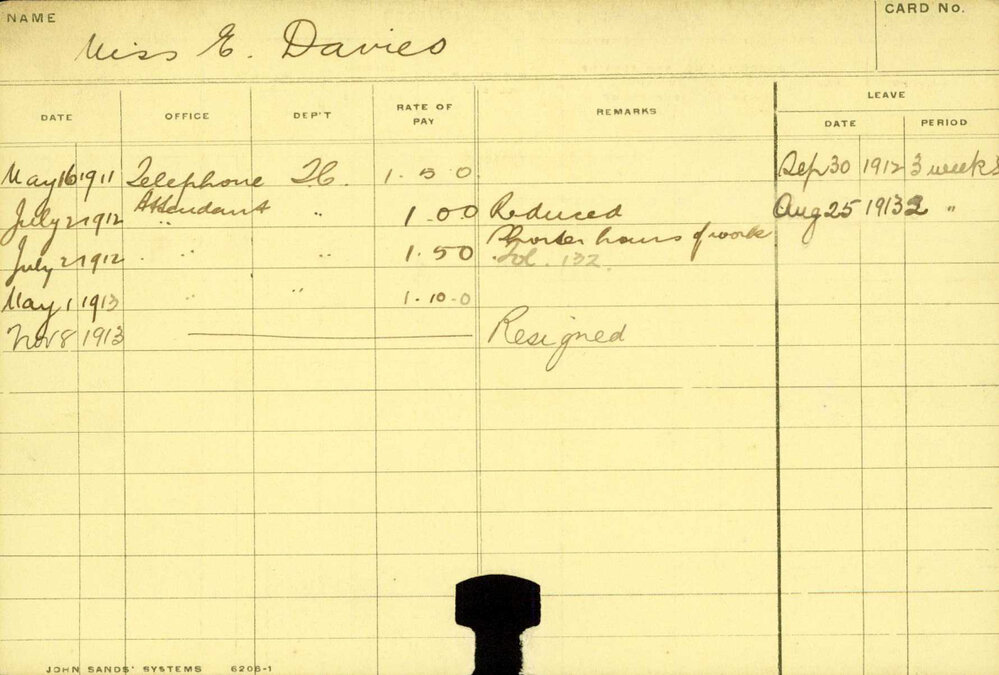 NAME Miss E. Davies CARD No.
LEAVE
DATE OFFICE DEP'T RATE OF PAY REMARKS DATE PERIOD
May 16 1911 Telephone 1. 5 0 Sep 30 1912 3 weeks
July 2 1912 Attendant " 1. 00 Reduced Aug 25 1913 2 "
Shorter hours of work
July 2 1912 " " 1. 50 fol. 132
May 1 1913 " " 1-10-0
Nov 8 1913 Resigned
JOHN SANDS' SYSTEMS 6206-1